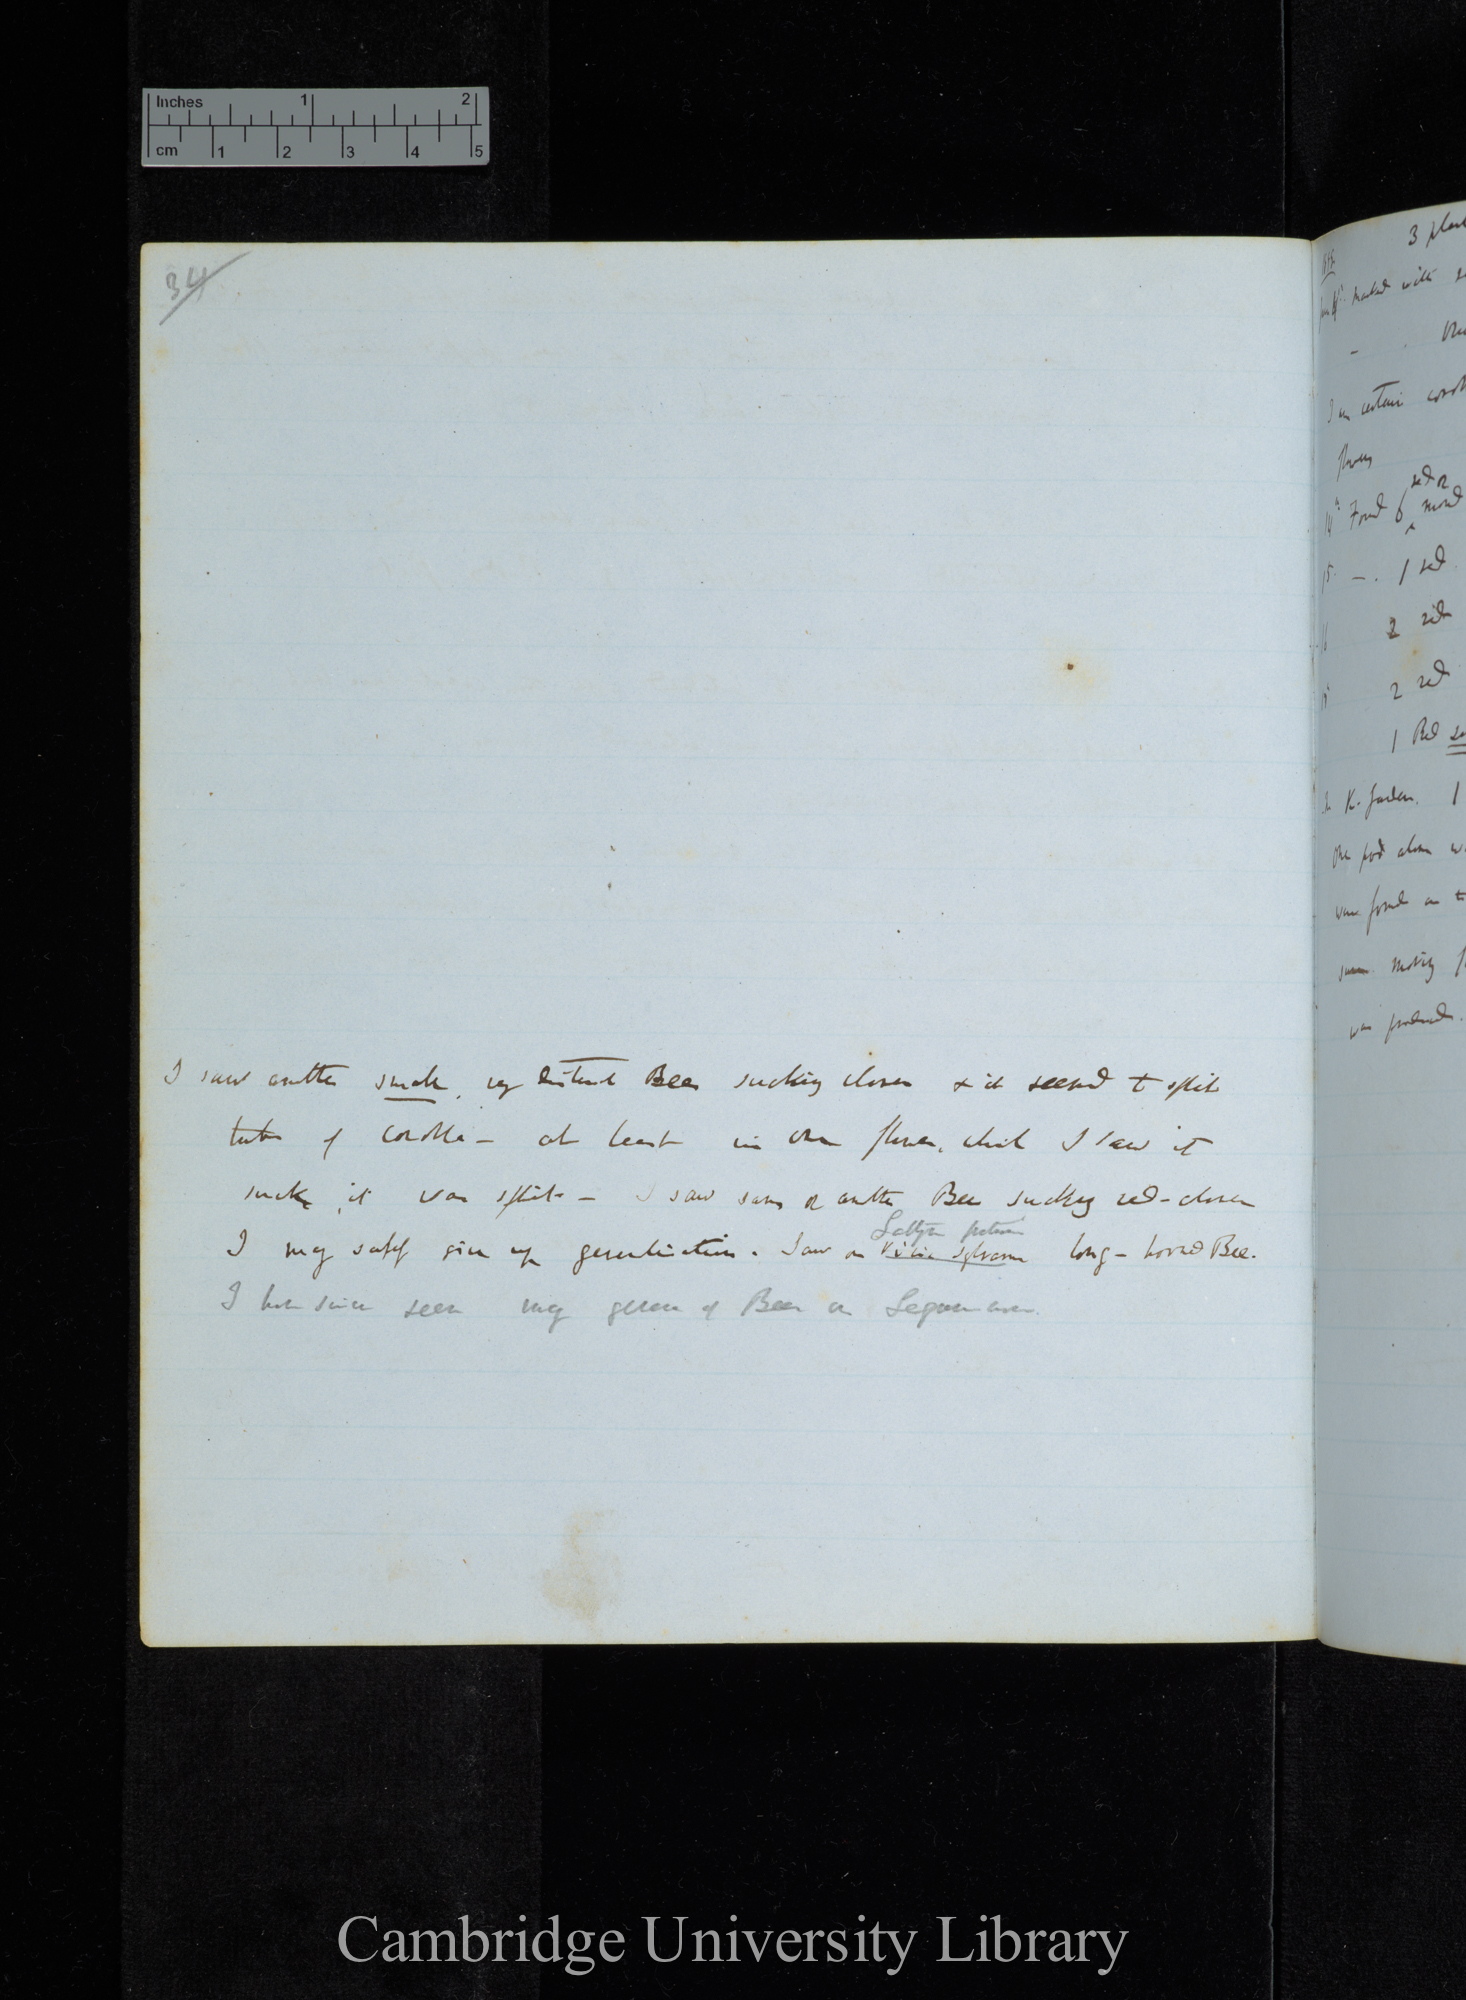 Inches 1 2
cm 1 2 3 4 5
34
I saw another small, very distinct Bee sucking clover & it seemed to split
tube of corolla – at least in one flower, which I saw it
suck, it was split – I saw same or another Bee sucking red-clover
I may safely give up generalisation. Saw on Vicia long-horned Bee.
I have since seen many genera of Bees on Leguminosæ.
3
marked with
I am certain
flowers
14 Found 6 red or
15 – . 1 red
16 2
2 red
1 Red
K. Garden. 1
One pod alone
were found on
was produced.
Cambridge University Library